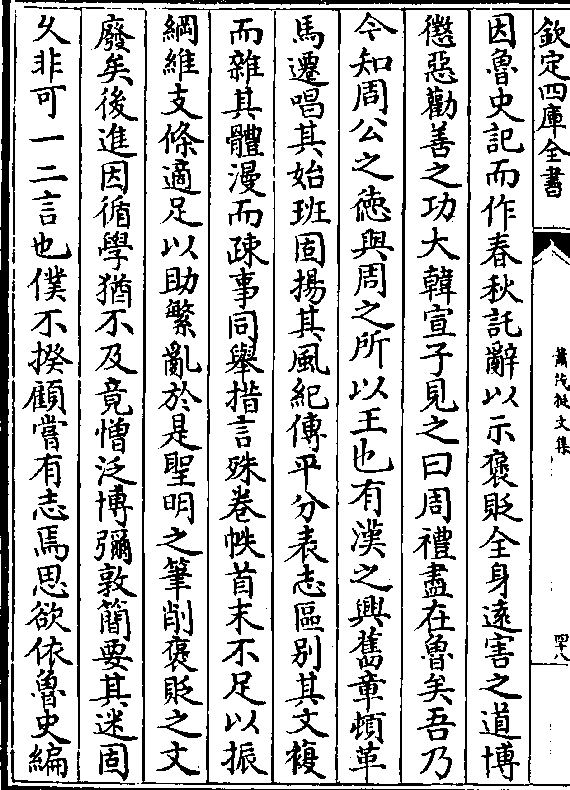 欽定四庫全書
蕭茂挺文集
四十八
因魯史記而作春秋託辭以示襃貶全身逺害之道博
懲惡勸善之功大韓宣子見之曰周禮盡在魯矣吾乃
今知周公之徳與周之所以王也有漢之興舊章頓革
馬遷唱其始班固揚其風紀傳平分表志區别其文複
而雜其體漫而疎事同舉措言殊卷帙首末不足以振
綱維支條適足以助繁亂於是聖明之筆削襃貶之文
廢矣後進因循學猶不及竟憎泛博彌敦簡要其迷固
乆非可一二言也僕不揆顧嘗有志焉思欲依魯史編